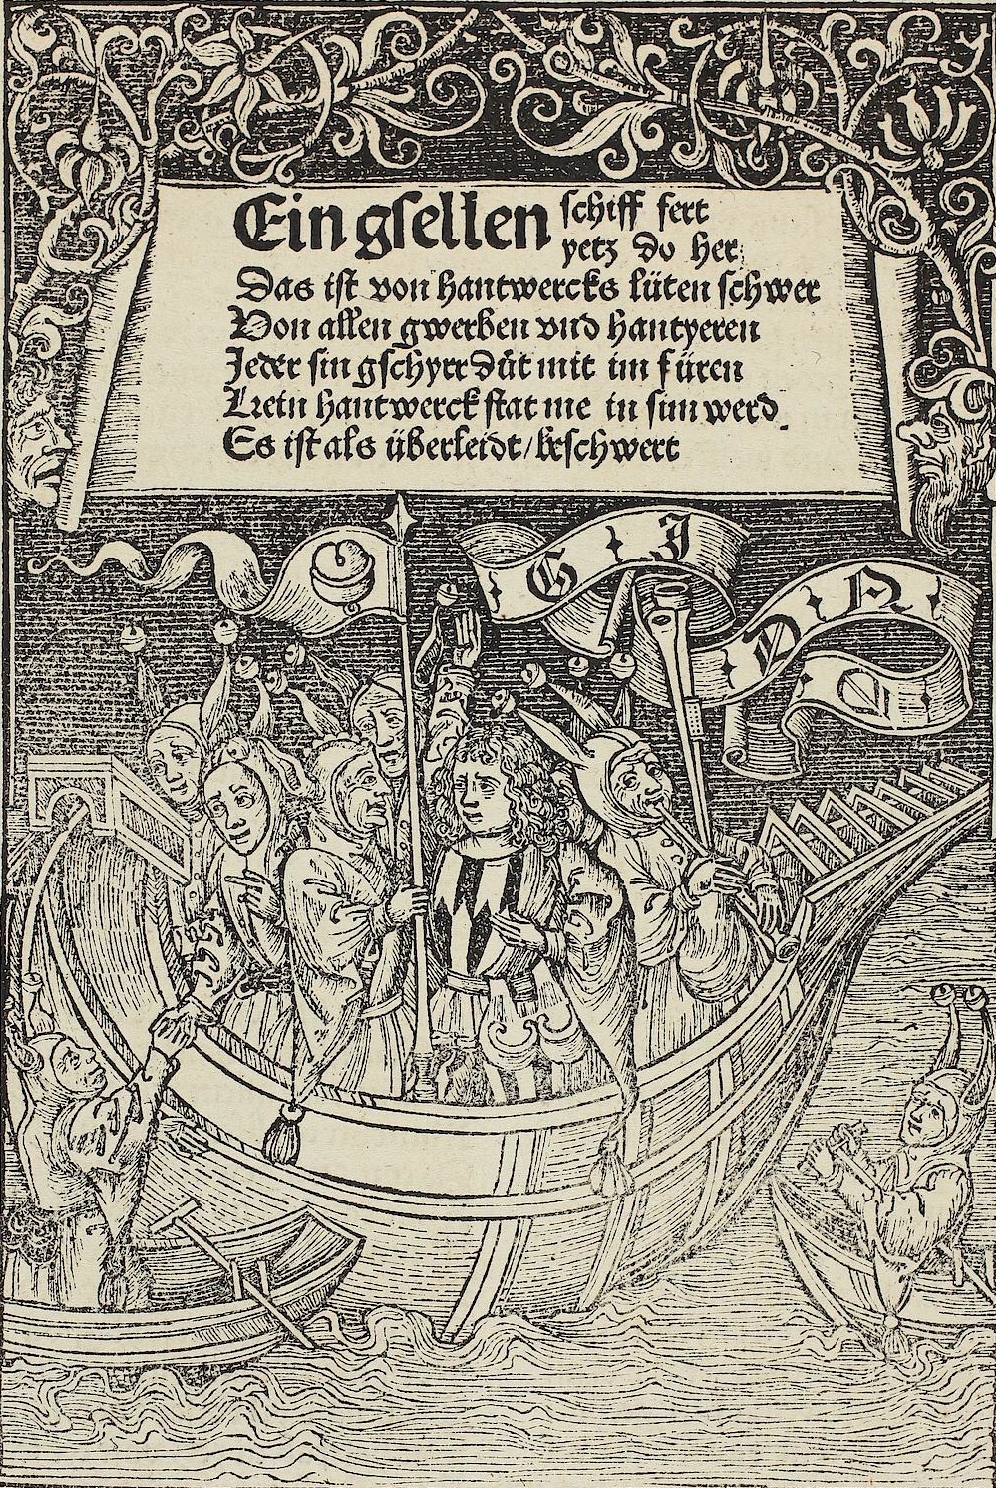 Ein gsellen schiff fert
yetz do her
Das ist von hantwercks lüten schwer
Von allen gwerben vnd hantyeren
Jeder sin gschyrr důt mit im füren
Kein hantwerck stat me in sim werd
Es ist als überleidt/beschwert
G J
D N
O